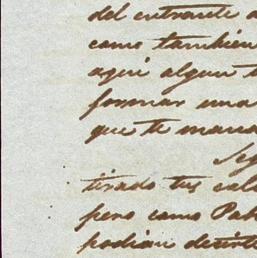 del entrante
como tambien
aqui algun
formar una
que te man
Seg
tirado tus cal
pero como Pab
podian decirte